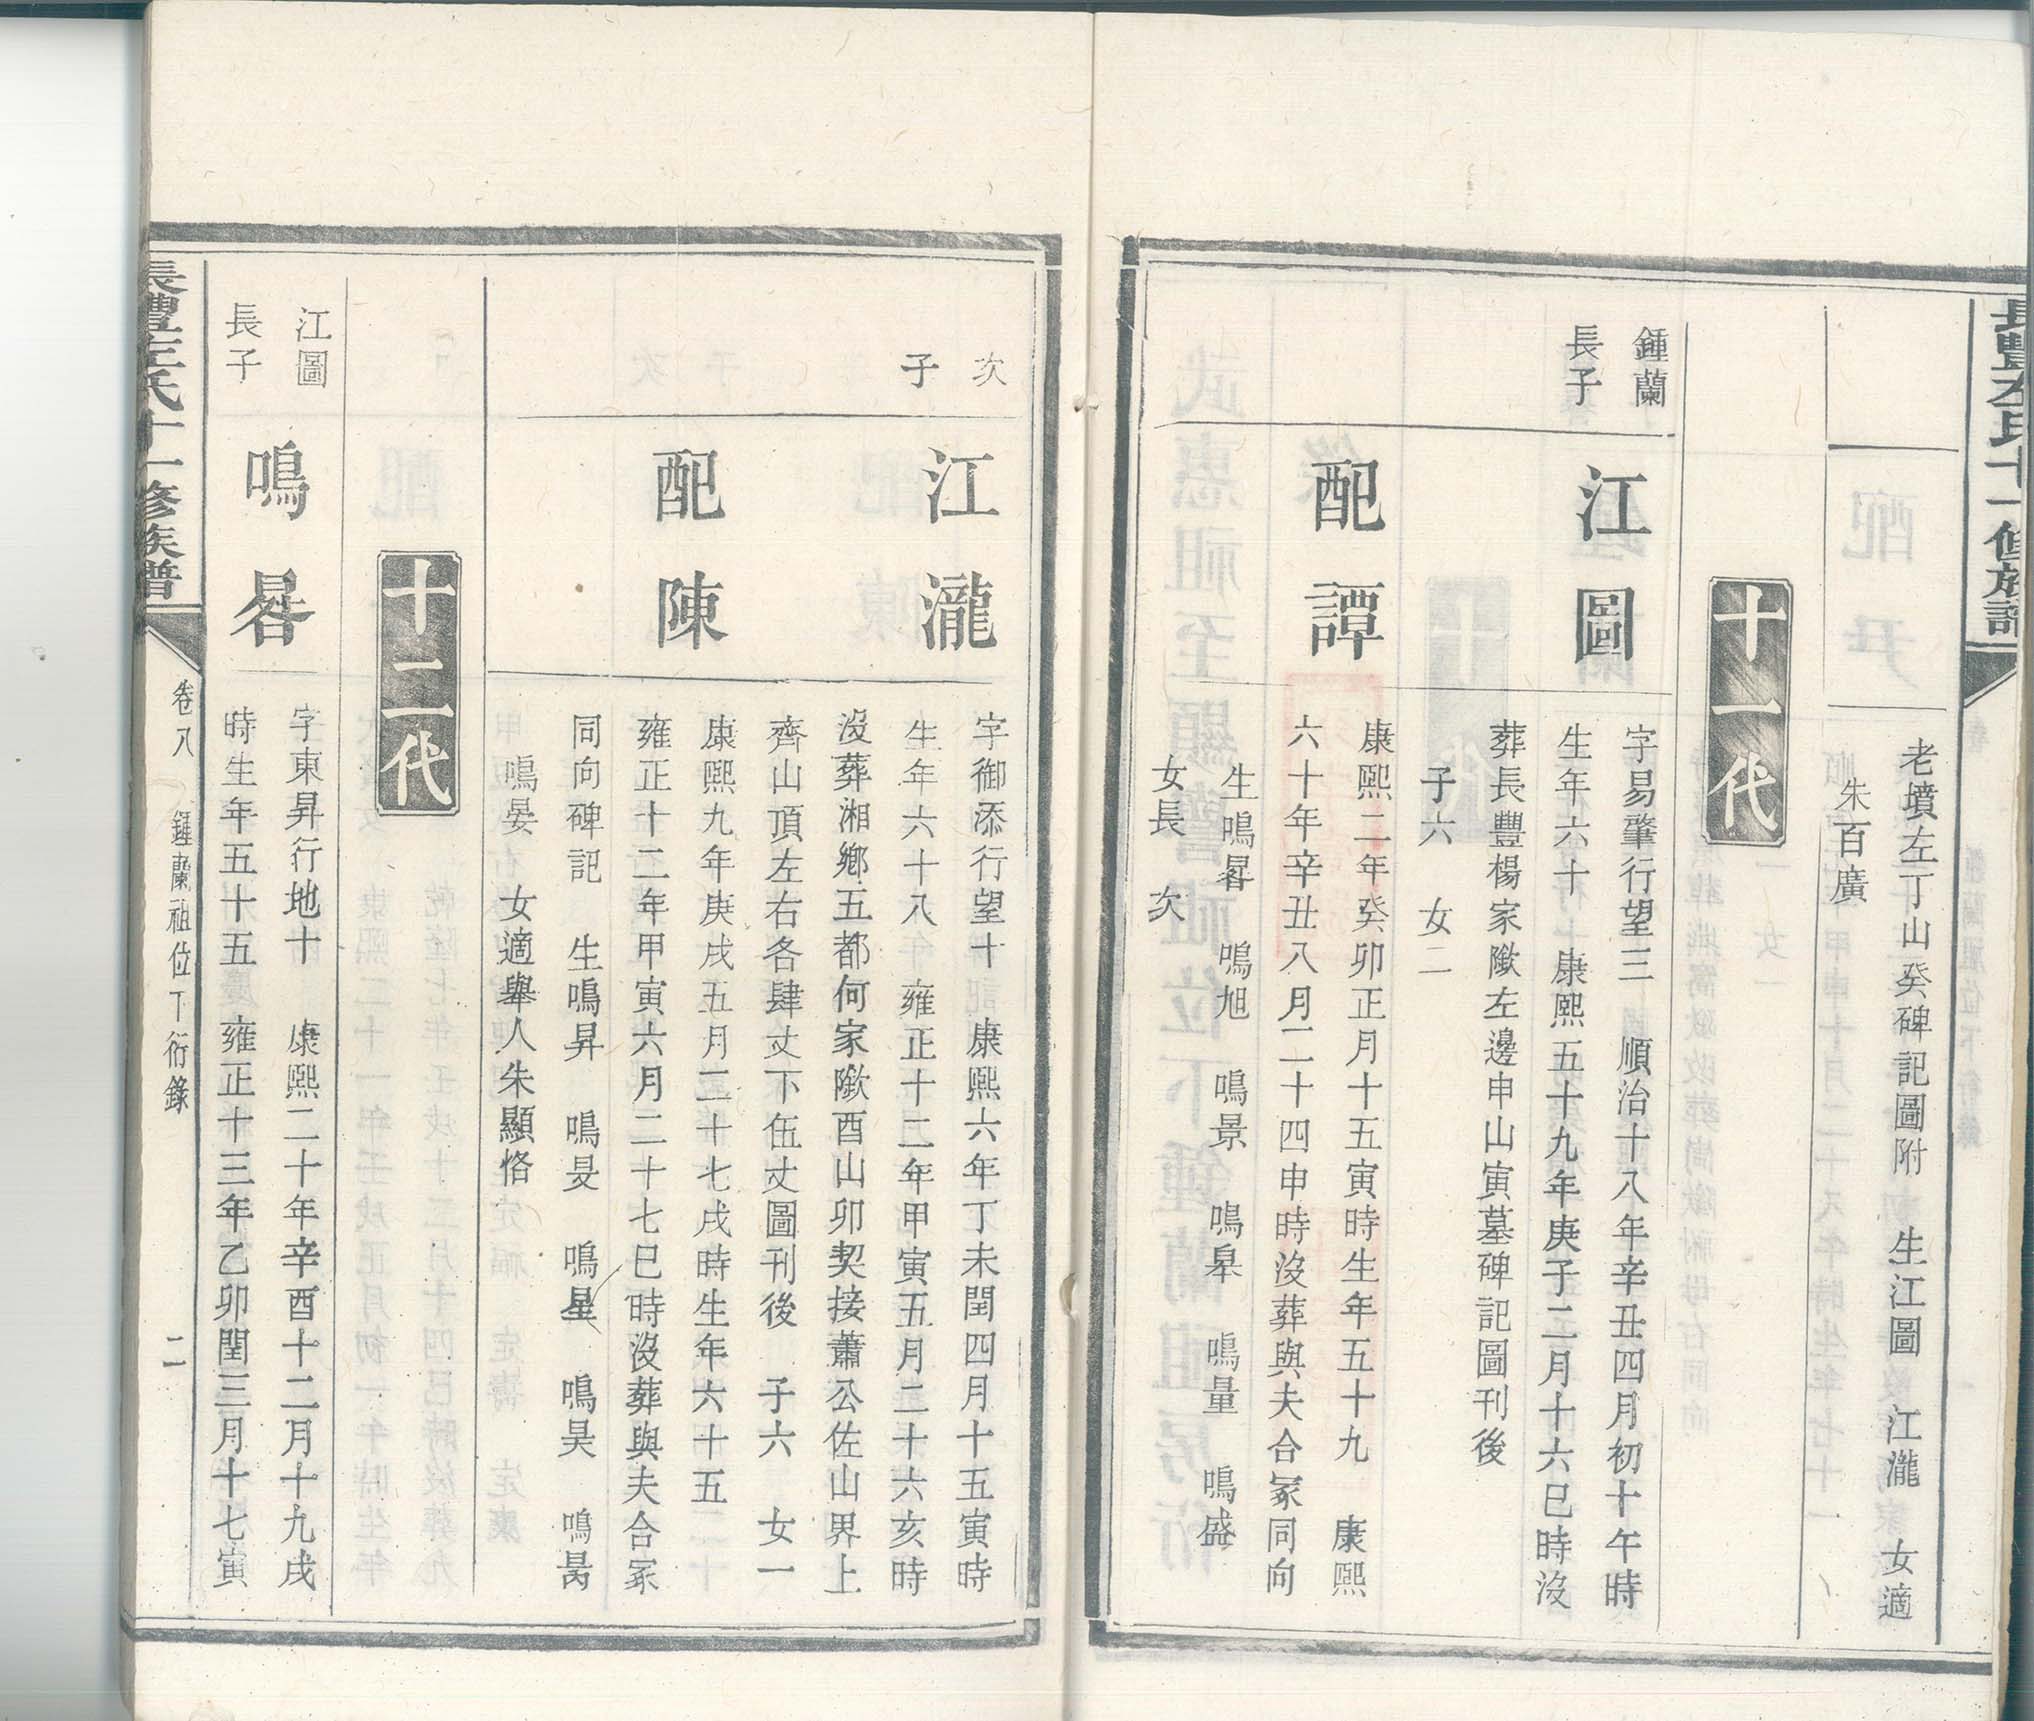 長豐左氏十一修族譜
老墳左丁山癸碑記圖附　生江圖　江瀧　女適
朱百廣
十一代
鍾蘭
長子
江圖
字易肇行望三　順治十八年辛丑四月初十午時
生年六十　康熙五十九年庚子二月十六巳時沒
葬長豐楊家歘左邊申山寅墓碑記圖刊後
子六　女二
配譚
康熙二年癸卯正月十五寅時生年五十九　康熙
六十年辛丑八月二十四申時沒葬與夫合冢同向
生鳴晷　鳴旭　鳴景　鳴皋　鳴量　鳴盛
女長　次
次
子
江瀧
字御添行望十　康熙六年丁未閏四月十五寅時
生年六十八　雍正十二年甲寅五月二十六亥時
沒葬湘鄉五都何家歘酉山卯契接蕭公佐山界上
齊山頂左右各肆丈下伍丈圖刊後　子六　女一
配陳
康熙九年庚戌五月二十七戌時生年六十五
雍正十二年甲寅六月二十七巳時沒葬與夫合冢
同向碑記　生鳴昇　鳴旻　鳴星　鳴昊　鳴暠
鳴晏　女適舉人朱顯恪
十二代
江圖
長子
鳴晷
字東昇行地十　康熙二十年辛酉十二月十九戌
時生年五十五　雍正十三年乙卯閏三月十七寅
長豐左氏十一修族譜
卷八　鍾蘭祖位下衍錄
二